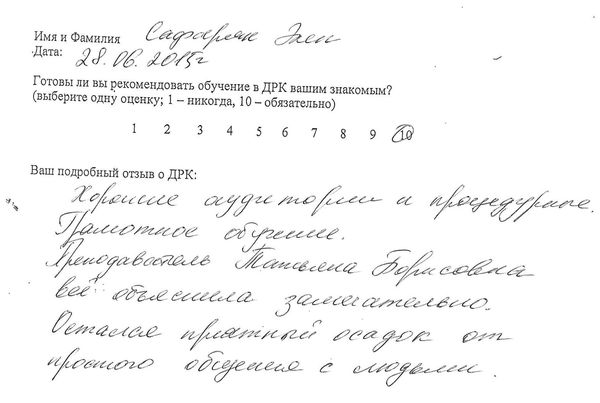 Имя и Фамилия Сафарян Эмен
Дата: 28.06.2015г
Готовы ли вы рекомендовать обучение в ДРК вашим знакомым?
(выберите одну оценку; 1 – никогда, 10 – обязательно)
1 2 3 4 5 6 7 8 9 10
Ваш подробный отзыв о ДРК:
Хорошие аудитории и процедурные.
Грамотное обучение.
Преподаватель Татьяна Борисовна
всё объяснила замечательно.
Остался приятный осадок от
простого общения с людьми.